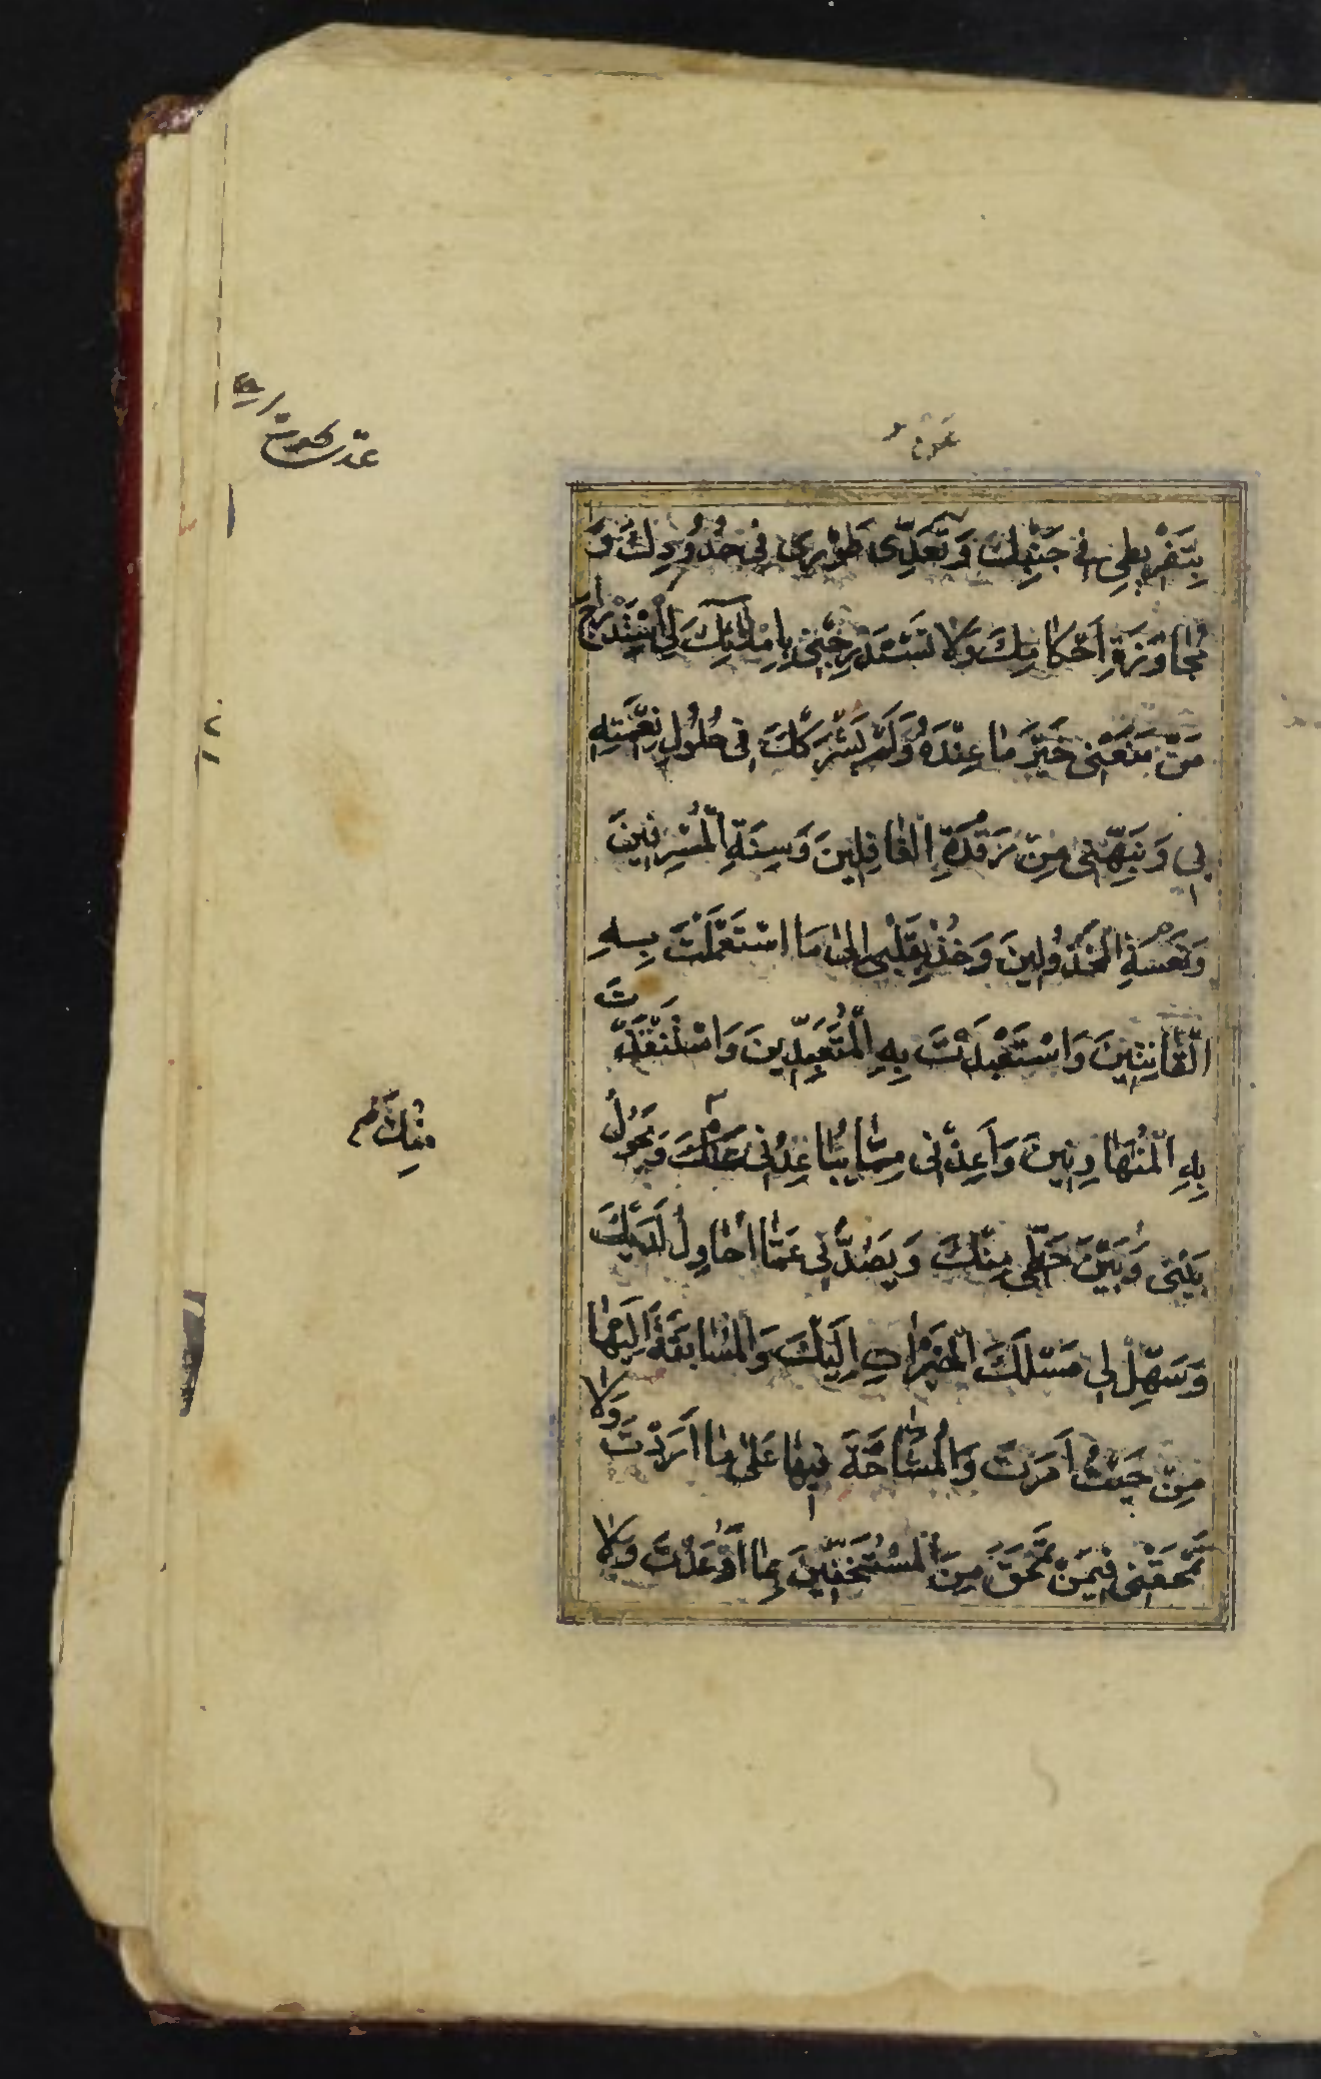 بِتَفْرِيطِي فِي جَنْبِكَ وَتَعَدِّي طَوْرِي فِي حُدُودِكَ وَ
مُجَاوَزَةِ أَحْكَامِكَ وَلَا تَسْتَدْرِجْنِي بِإِمْلَائِكَ لِي اسْتِدْرَاجَ
مَنْ مَنَعَنِي خَيْرَ مَا عِنْدَهُ وَلَمْ يَشْرَكْكَ فِي حُلُولِ نِعْمَتِهِ
بِي وَنَبِّهْنِي مِنْ رَقْدَةِ الْغَافِلِينَ وَسِنَةِ الْمُسْرِفِينَ
وَنَعْسَةِ الْمَخْذُولِينَ وَخُذْ بِقَلْبِي إِلَى مَا اسْتَعْمَلْتَ بِهِ
الْقَانِتِينَ وَاسْتَعْبَدْتَ بِهِ الْمُتَعَبِّدِينَ وَاسْتَنْقَذْتَ
بِهِ الْمُتَهَاوِنِينَ وَأَعِذْنِي مِمَّا يُبَاعِدُنِي عَنْكَ وَيَحُولُ
بَيْنِي وَبَيْنَ حَظِّي مِنْكَ وَيَصُدُّنِي عَمَّا أُحَاوِلُ لَدَيْكَ
وَسَهِّلْ لِي مَسْلَكَ الْخَيْرَاتِ إِلَيْكَ وَالْمُسَابَقَةَ إِلَيْهَا
مِنْ حَيْثُ أَمَرْتَ وَالْمُشَاحَّةَ فِيهَا عَلَى مَا أَرَدْتَ وَلَا
تَمْحَقْنِي فِيمَنْ تَمْحَقُ مِنَ الْمُسْتَخِفِّينَ بِمَا أَوْعَدْتَ وَلَا
مِنْكَ